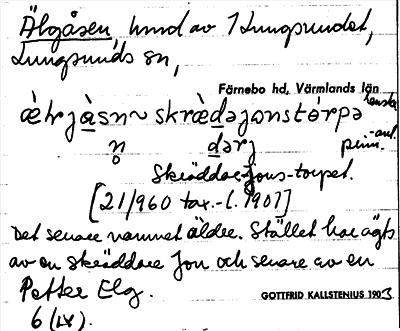 Älgåsen, hmd av 1 Lungsundet,
Lungsunds sn,
Färnebo hd, Värmlands län
Skräddar-Jons-torpet.
[21/960 tax.-l. 1907]
Det senare namnet äldre. Stället har ägts
av en skräddare Jon och senare av en
Petter Elg.
GOTTFRID KALLSTENIUS 1903
6 (LX).